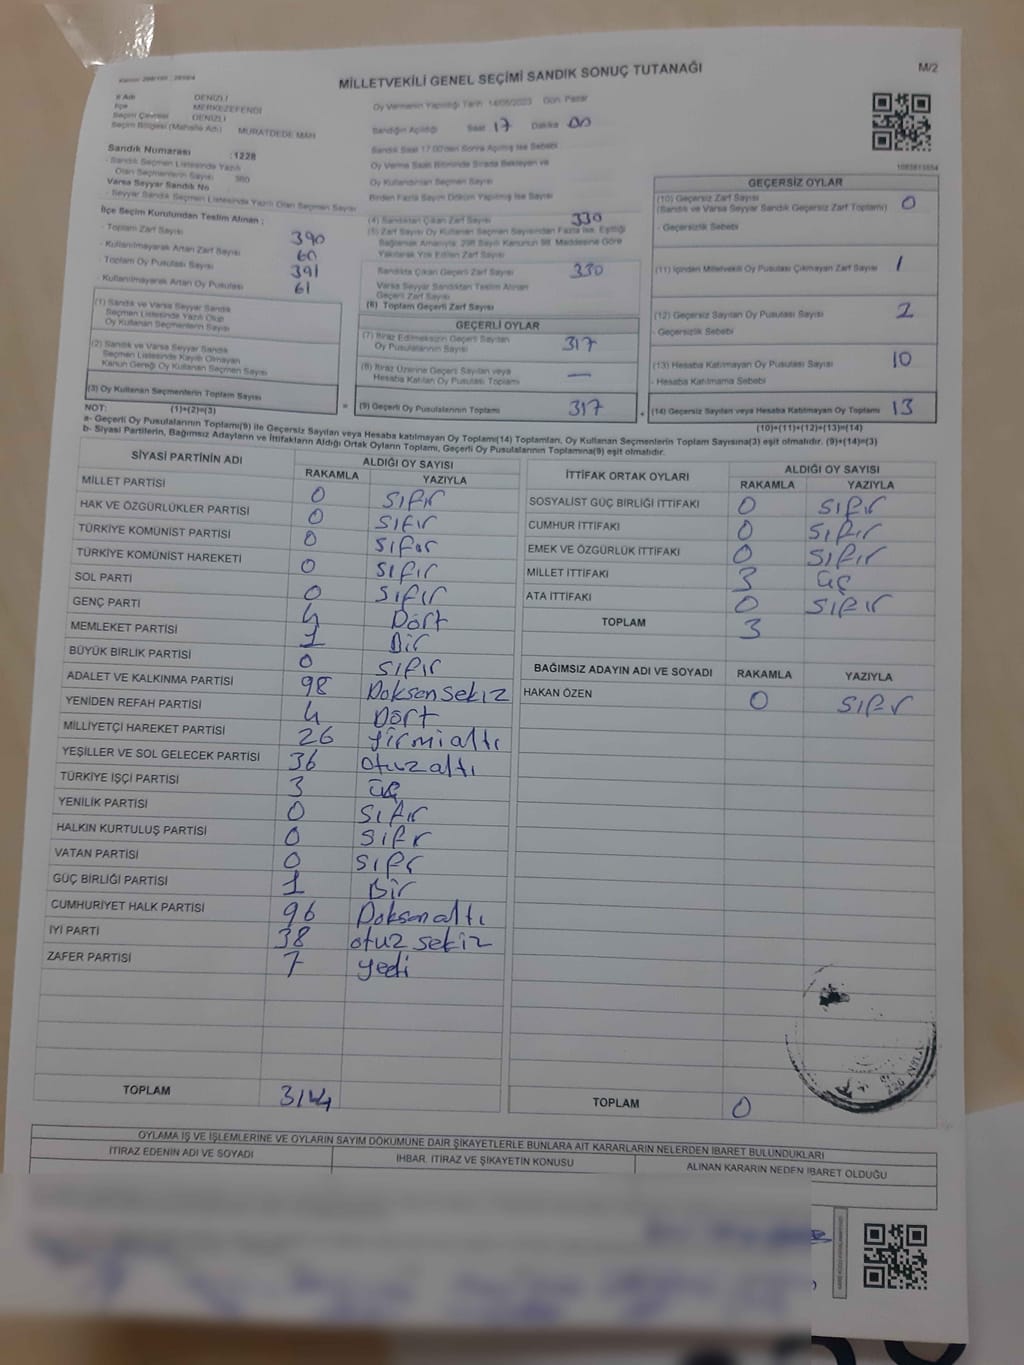 MİLLETVEKİLİ GENEL SEÇİMİ SANDIK SONUÇ TUTANAĞI
M/2
İl Adı DENİZLİ
İlçe MERKEZEFENDİ
Seçim Çevresi DENİZLİ
Seçim Bölgesi (Mahalle Adı) MURATDEDE MAH
Sandık Numarası : 1228
- Sandık Seçmen Listesinde Yazılı
Olan Seçmenlerin Sayısı 380
Varsa Seyyar Sandık No
- Seyyar Sandık Seçmen Listesinde Yazılı Olan Seçmen Sayısı
İlçe Seçim Kurulundan Teslim Alınan ;
- Toplam Zarf Sayısı 390
- Kullanılmayarak Artan Zarf Sayısı 60
- Toplam Oy Pusulası Sayısı 391
- Kullanılmayarak Artan Oy Pusulası 61
(1) Sandık ve Varsa Seyyar Sandık
Seçmen Listesinde Yazılı Olup
Oy Kullanan Seçmenlerin Sayısı
(2) Sandık ve Varsa Seyyar Sandık
Seçmen Listesinde Kayıtlı Olmayan
Kanun Gereği Oy Kullanan Seçmen Sayısı
(3) Oy Kullanan Seçmenlerin Toplam Sayısı
(1)+(2)=(3)
Oy Vermenin Yapıldığı Tarih 14/05/2023 Gün Pazar
Sandığın Açıldığı Saat 17 Dakika 00
Sandık Saat 17.00'den Sonra Açılmış İse Sebebi
Oy Verme Saati Bitiminde Sırada Bekleyen ve
Oy Kullandırılan Seçmen Sayısı
Birden Fazla Sayım Döküm Yapılmış İse Sayısı
(4) Sandıktan Çıkan Zarf Sayısı 330
(5) Zarf Sayısı Oy Kullanan Seçmen Sayısından Fazla İse, Eşitliği
Sağlamak Amacıyla, 298 Sayılı Kanunun 98. Maddesine Göre
Yakılarak Yok Edilen Zarf Sayısı
Sandıkta Çıkan Geçerli Zarf Sayısı 330
Varsa Seyyar Sandıktan Teslim Alınan
Geçerli Zarf Sayısı
(6) Toplam Geçerli Zarf Sayısı
GEÇERLİ OYLAR
(7) İtiraz Edilmeksizin Geçerli Sayılan
Oy Pusulalarının Sayısı 317
(8) İtiraz Üzerine Geçerli Sayılan veya
Hesaba Katılan Oy Pusulası Toplamı —
= (9) Geçerli Oy Pusulalarının Toplamı 317 +
1083813554
GEÇERSİZ OYLAR
(10) Geçersiz Zarf Sayısı
(Sandık ve Varsa Seyyar Sandık Geçersiz Zarf Toplamı) 0
- Geçersizlik Sebebi
(11) İçinden Milletvekili Oy Pusulası Çıkmayan Zarf Sayısı 1
(12) Geçersiz Sayılan Oy Pusulası Sayısı 2
- Geçersizlik Sebebi
(13) Hesaba Katılmayan Oy Pusulası Sayısı 10
- Hesaba Katılmama Sebebi
(14) Geçersiz Sayılan veya Hesaba Katılmayan Oy Toplamı 13
(10)+(11)+(12)+(13)=(14)
NOT:
a- Geçerli Oy Pusulaların Toplamı(9) ile Geçersiz Sayılan veya Hesaba katılmayan Oy Toplamı(14) Toplamları, Oy Kullanan Seçmenlerin Toplam Sayısına(3) eşit olmalıdır. (9)+(14)=(3)
b- Siyasi Partilerin, Bağımsız Adayların ve İttifakların Aldığı Ortak Oyların Toplamı, Geçerli Oy Pusulalarının Toplamına(9) eşit olmalıdır.
SİYASİ PARTİNİN ADI ALDIĞI OY SAYISI
RAKAMLA YAZIYLA
MİLLET PARTİSİ 0 sıfır
HAK VE ÖZGÜRLÜKLER PARTİSİ 0 sıfır
TÜRKİYE KOMÜNİST PARTİSİ 0 sıfır
TÜRKİYE KOMÜNİST HAREKETİ 0 sıfır
SOL PARTİ 0 sıfır
GENÇ PARTİ 4 Dört
MEMLEKET PARTİSİ 1 Bir
BÜYÜK BİRLİK PARTİSİ 0 sıfır
ADALET VE KALKINMA PARTİSİ 98 Doksan sekiz
YENİDEN REFAH PARTİSİ 4 Dört
MİLLİYETÇİ HAREKET PARTİSİ 26 yirmi altı
YEŞİLLER VE SOL GELECEK PARTİSİ 36 otuz altı
TÜRKİYE İŞÇİ PARTİSİ 3 üç
YENİLİK PARTİSİ 0 sıfır
HALKIN KURTULUŞ PARTİSİ 0 sıfır
VATAN PARTİSİ 0 sıfır
GÜÇ BİRLİĞİ PARTİSİ 1 Bir
CUMHURİYET HALK PARTİSİ 96 Doksan altı
İYİ PARTİ 38 otuz sekiz
ZAFER PARTİSİ 7 yedi
TOPLAM 314
İTTİFAK ORTAK OYLARI ALDIĞI OY SAYISI
RAKAMLA YAZIYLA
SOSYALİST GÜÇ BİRLİĞİ İTTİFAKI 0 sıfır
CUMHUR İTTİFAKI 0 sıfır
EMEK VE ÖZGÜRLÜK İTTİFAKI 0 sıfır
MİLLET İTTİFAKI 3 üç
ATA İTTİFAKI 0 sıfır
TOPLAM 3
BAĞIMSIZ ADAYIN ADI VE SOYADI RAKAMLA YAZIYLA
HAKAN ÖZEN 0 sıfır
TOPLAM 0
OYLAMA İŞ VE İŞLEMLERİNE VE OYLARIN SAYIM DÖKÜMÜNE DAİR ŞİKAYETLERLE BUNLARA AİT KARARLARIN NELERDEN İBARET BULUNDUKLARI
İTİRAZ EDENİN ADI VE SOYADI
İHBAR, İTİRAZ VE ŞİKAYETİN KONUSU
ALINAN KARARIN NEDEN İBARET OLDUĞU